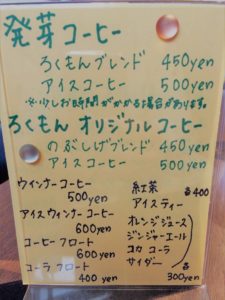 発芽コーヒー
ろくもんブレンド 450yen
アイスコーヒー 500yen
※少しお時間がかかる場合があります。
ろくもん オリジナルコーヒー
のぶしげブレンド 450yen
アイスコーヒー 500yen
ウインナーコーヒー
500yen
アイスウィンナーコーヒー
600yen
コーヒーフロート
600yen
コーラフロート
400yen
紅茶 各400
アイスティー
オレンジジュース
ジンジャーエール
コカコーラ
サイダー 各
300yen